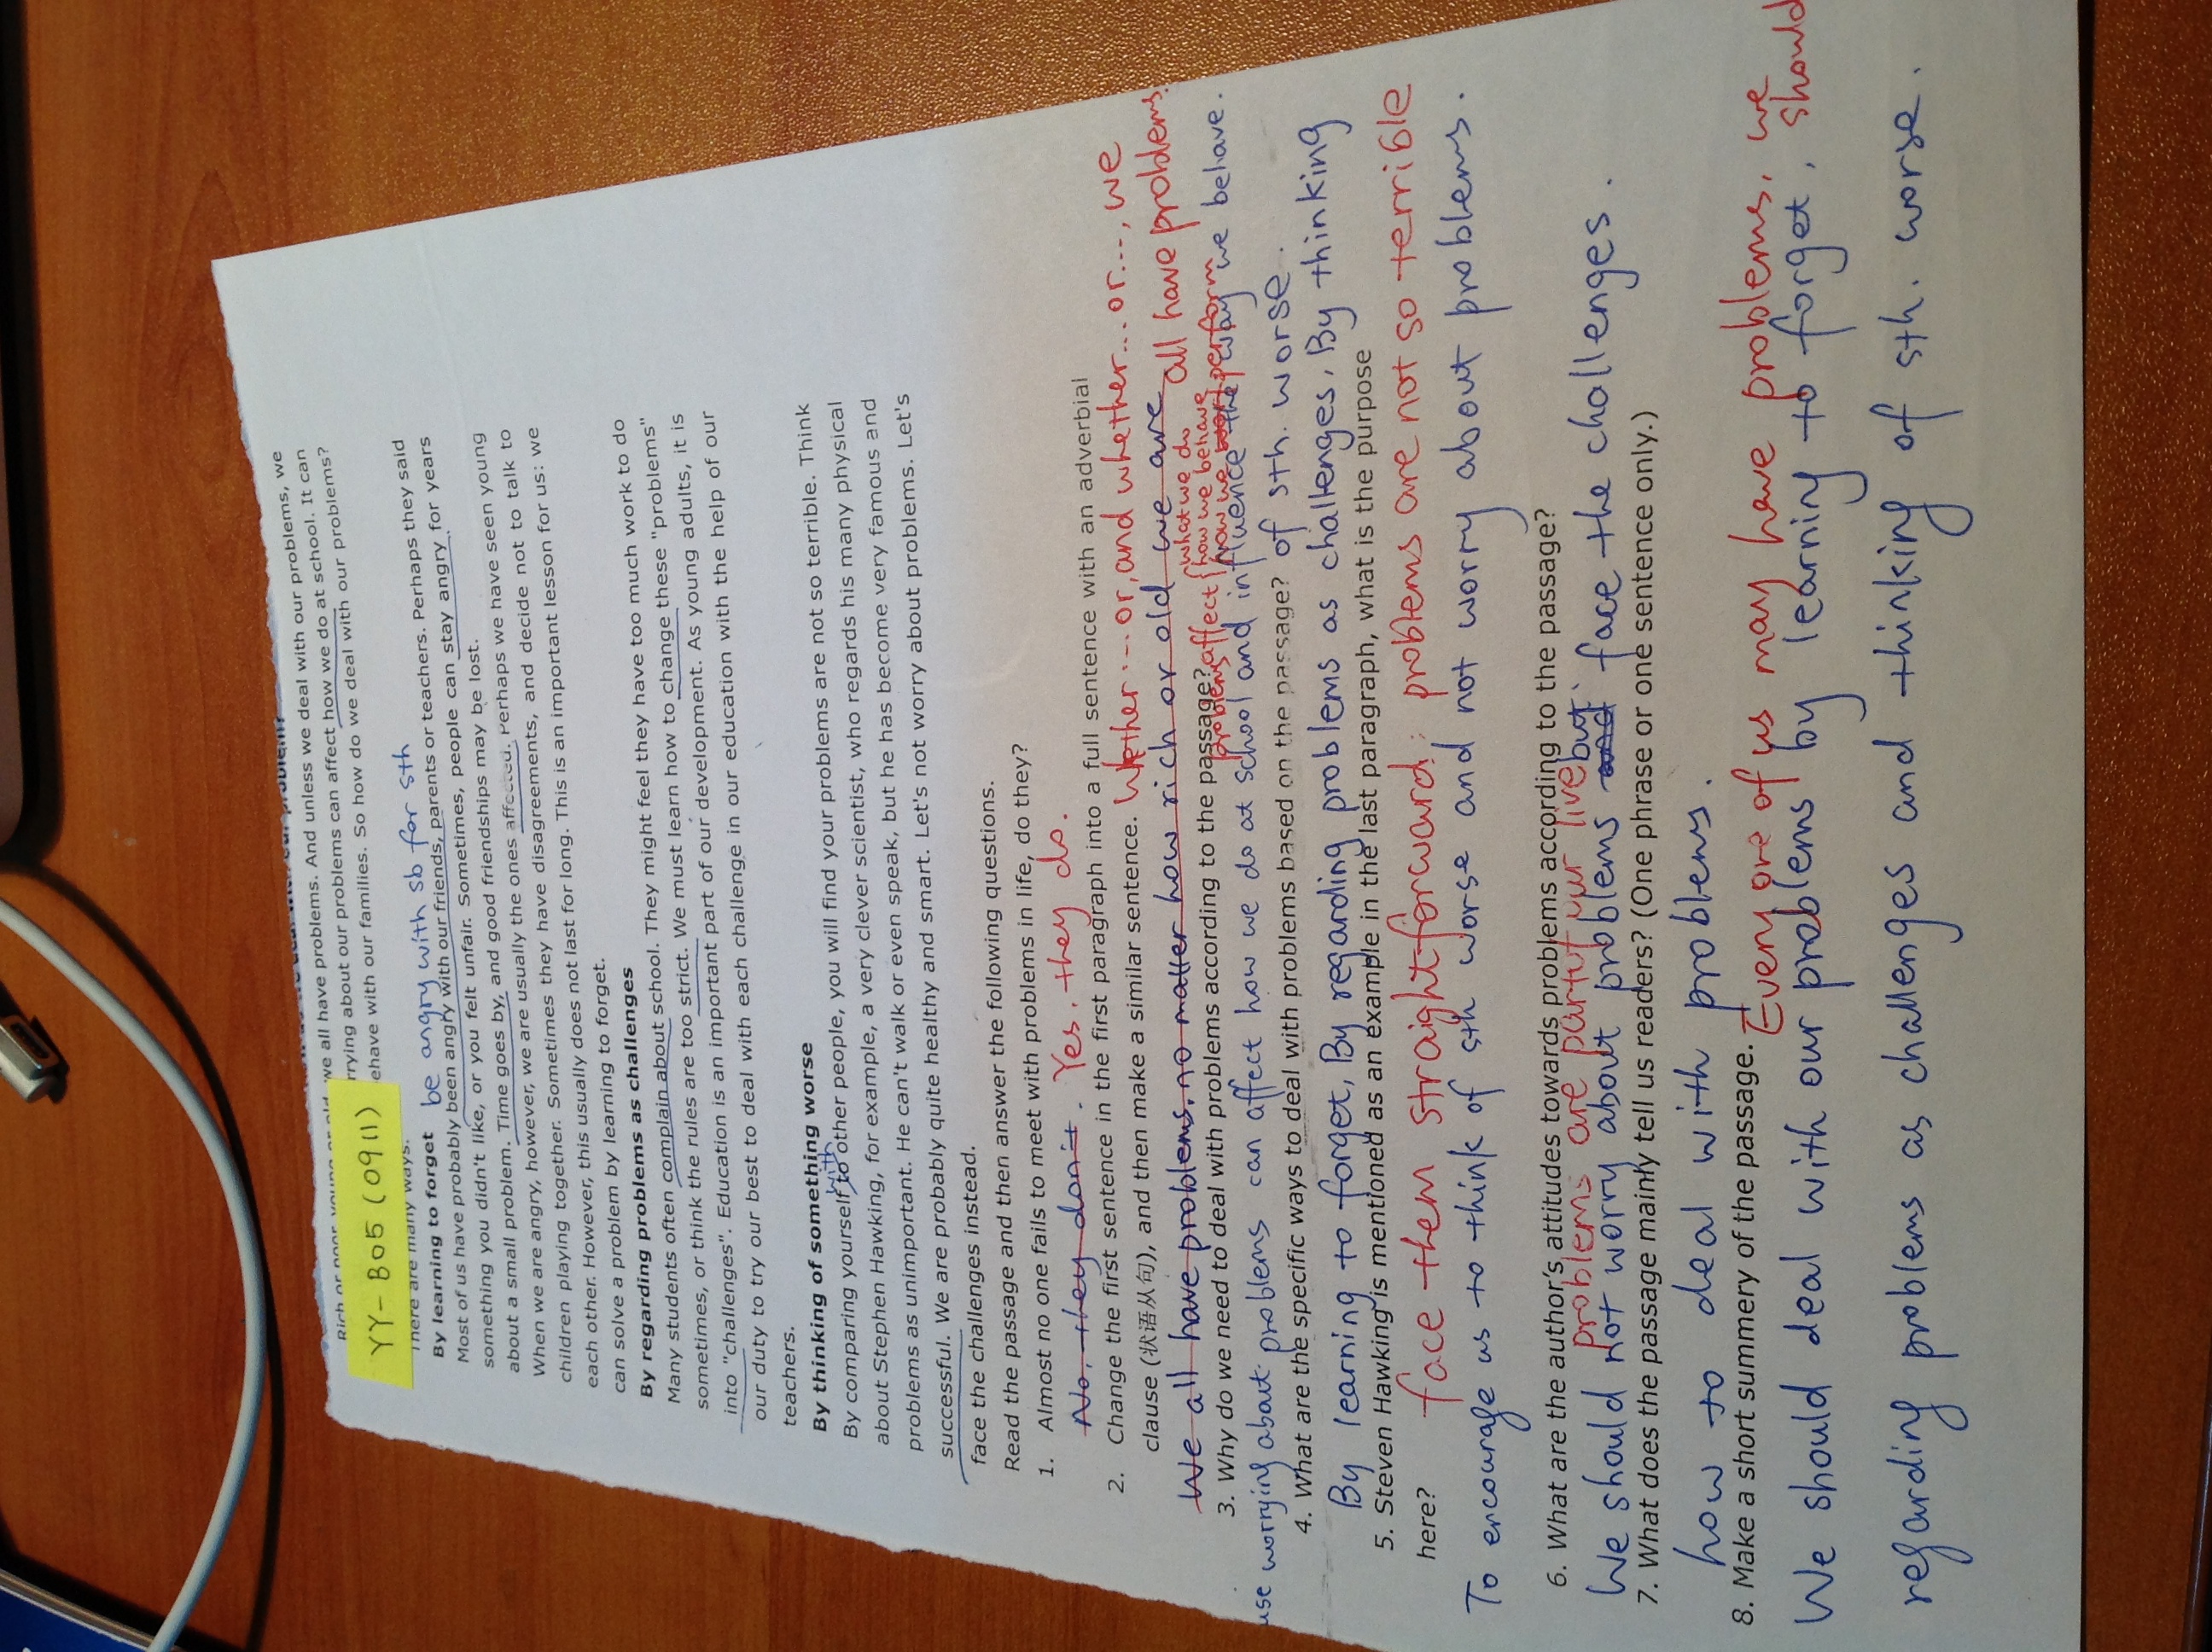 we all have problems. And unless we deal with our problems, we
rrying about our problems can affect how we do at school. It can
YY-B05 (0911)
ehave with our families. So how do we deal with our problems?
There are many ways.
By learning to forget be angry with sb for sth
Most of us have probably been angry with our friends, parents or teachers. Perhaps they said
something you didn't like, or you felt unfair. Sometimes, people can stay angry for years
about a small problem. Time goes by, and good friendships may be lost.
When we are angry, however, we are usually the ones affected. Perhaps we have seen young
children playing together. Sometimes they have disagreements, and decide not to talk to
each other. However, this usually does not last for long. This is an important lesson for us: we
can solve a problem by learning to forget.
By regarding problems as challenges
Many students often complain about school. They might feel they have too much work to do
sometimes, or think the rules are too strict. We must learn how to change these "problems"
into "challenges". Education is an important part of our development. As young adults, it is
our duty to try our best to deal with each challenge in our education with the help of our
teachers.
By thinking of something worse
with
By comparing yourself to other people, you will find your problems are not so terrible. Think
about Stephen Hawking, for example, a very clever scientist, who regards his many physical
problems as unimportant. He can't walk or even speak, but he has become very famous and
successful. We are probably quite healthy and smart. Let's not worry about problems. Let's
face the challenges instead.
Read the passage and then answer the following questions.
1. Almost no one fails to meet with problems in life, do they?
No, they don't. Yes, they do.
2. Change the first sentence in the first paragraph into a full sentence with an adverbial
clause (状语从句), and then make a similar sentence. Whether ... or, and whether... or..., we
We all have problems, no matter how rich or old we are all have problems.
what we do
3. Why do we need to deal with problems according to the passage? problems affect { how we behave
how we perform
use worrying about problems can affect how we do at school and influence the way we behave.
4. What are the specific ways to deal with problems based on the passage? of sth. worse.
By learning to forget, By regarding problems as challenges, By thinking
5. Steven Hawking is mentioned as an example in the last paragraph, what is the purpose
here? face them straightforward; problems are not so terrible
To encourage us to think of sth worse and not worry about problems.
6. What are the author's attitudes towards problems according to the passage?
problems are part of our live but
We should not worry about problems and face the challenges.
7. What does the passage mainly tell us readers? (One phrase or one sentence only.)
how to deal with problems.
8. Make a short summery of the passage. Every one of us may have problems, we
We should deal with our problems by learning to forget, should
regarding problems as challenges and thinking of sth. worse.